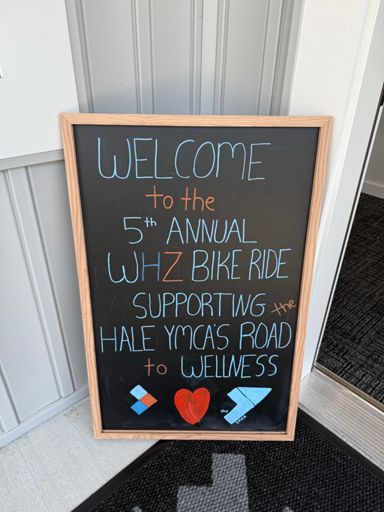 WELCOME
to the
5th ANNUAL
WHZ BIKE RIDE
SUPPORTING the
HALE YMCA'S ROAD
to WELLNESS
the
YMCA